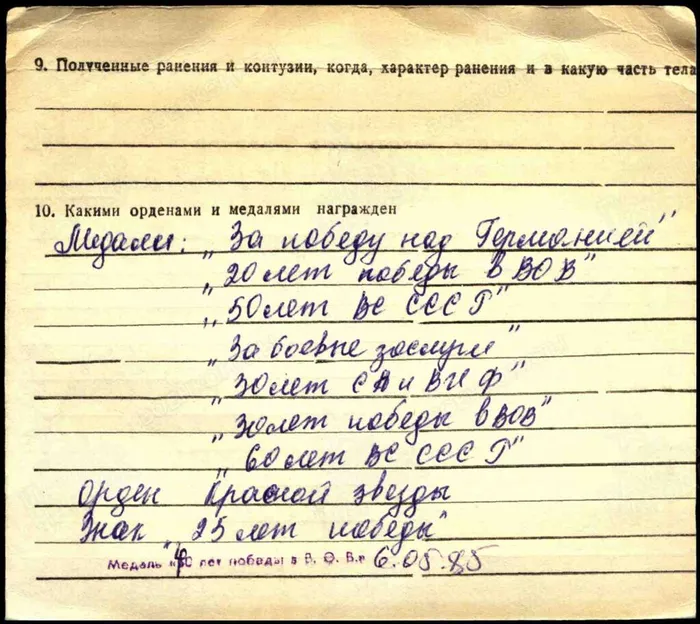 9. Полученные ранения и контузии, когда, характер ранения и в какую часть тела
10. Какими орденами и медалями награжден
Медали: „За победу над Германией"
„20 лет победы в ВОВ"
„50 лет ВС СССР"
„За боевые заслуги"
„30 лет СА и ВМФ"
„30 лет победы в ВОВ"
„60 лет ВС СССР"
Орден Красной звезды
Знак „25 лет победы"
Медаль «40 лет победы в В. О. В.» 6.05.85